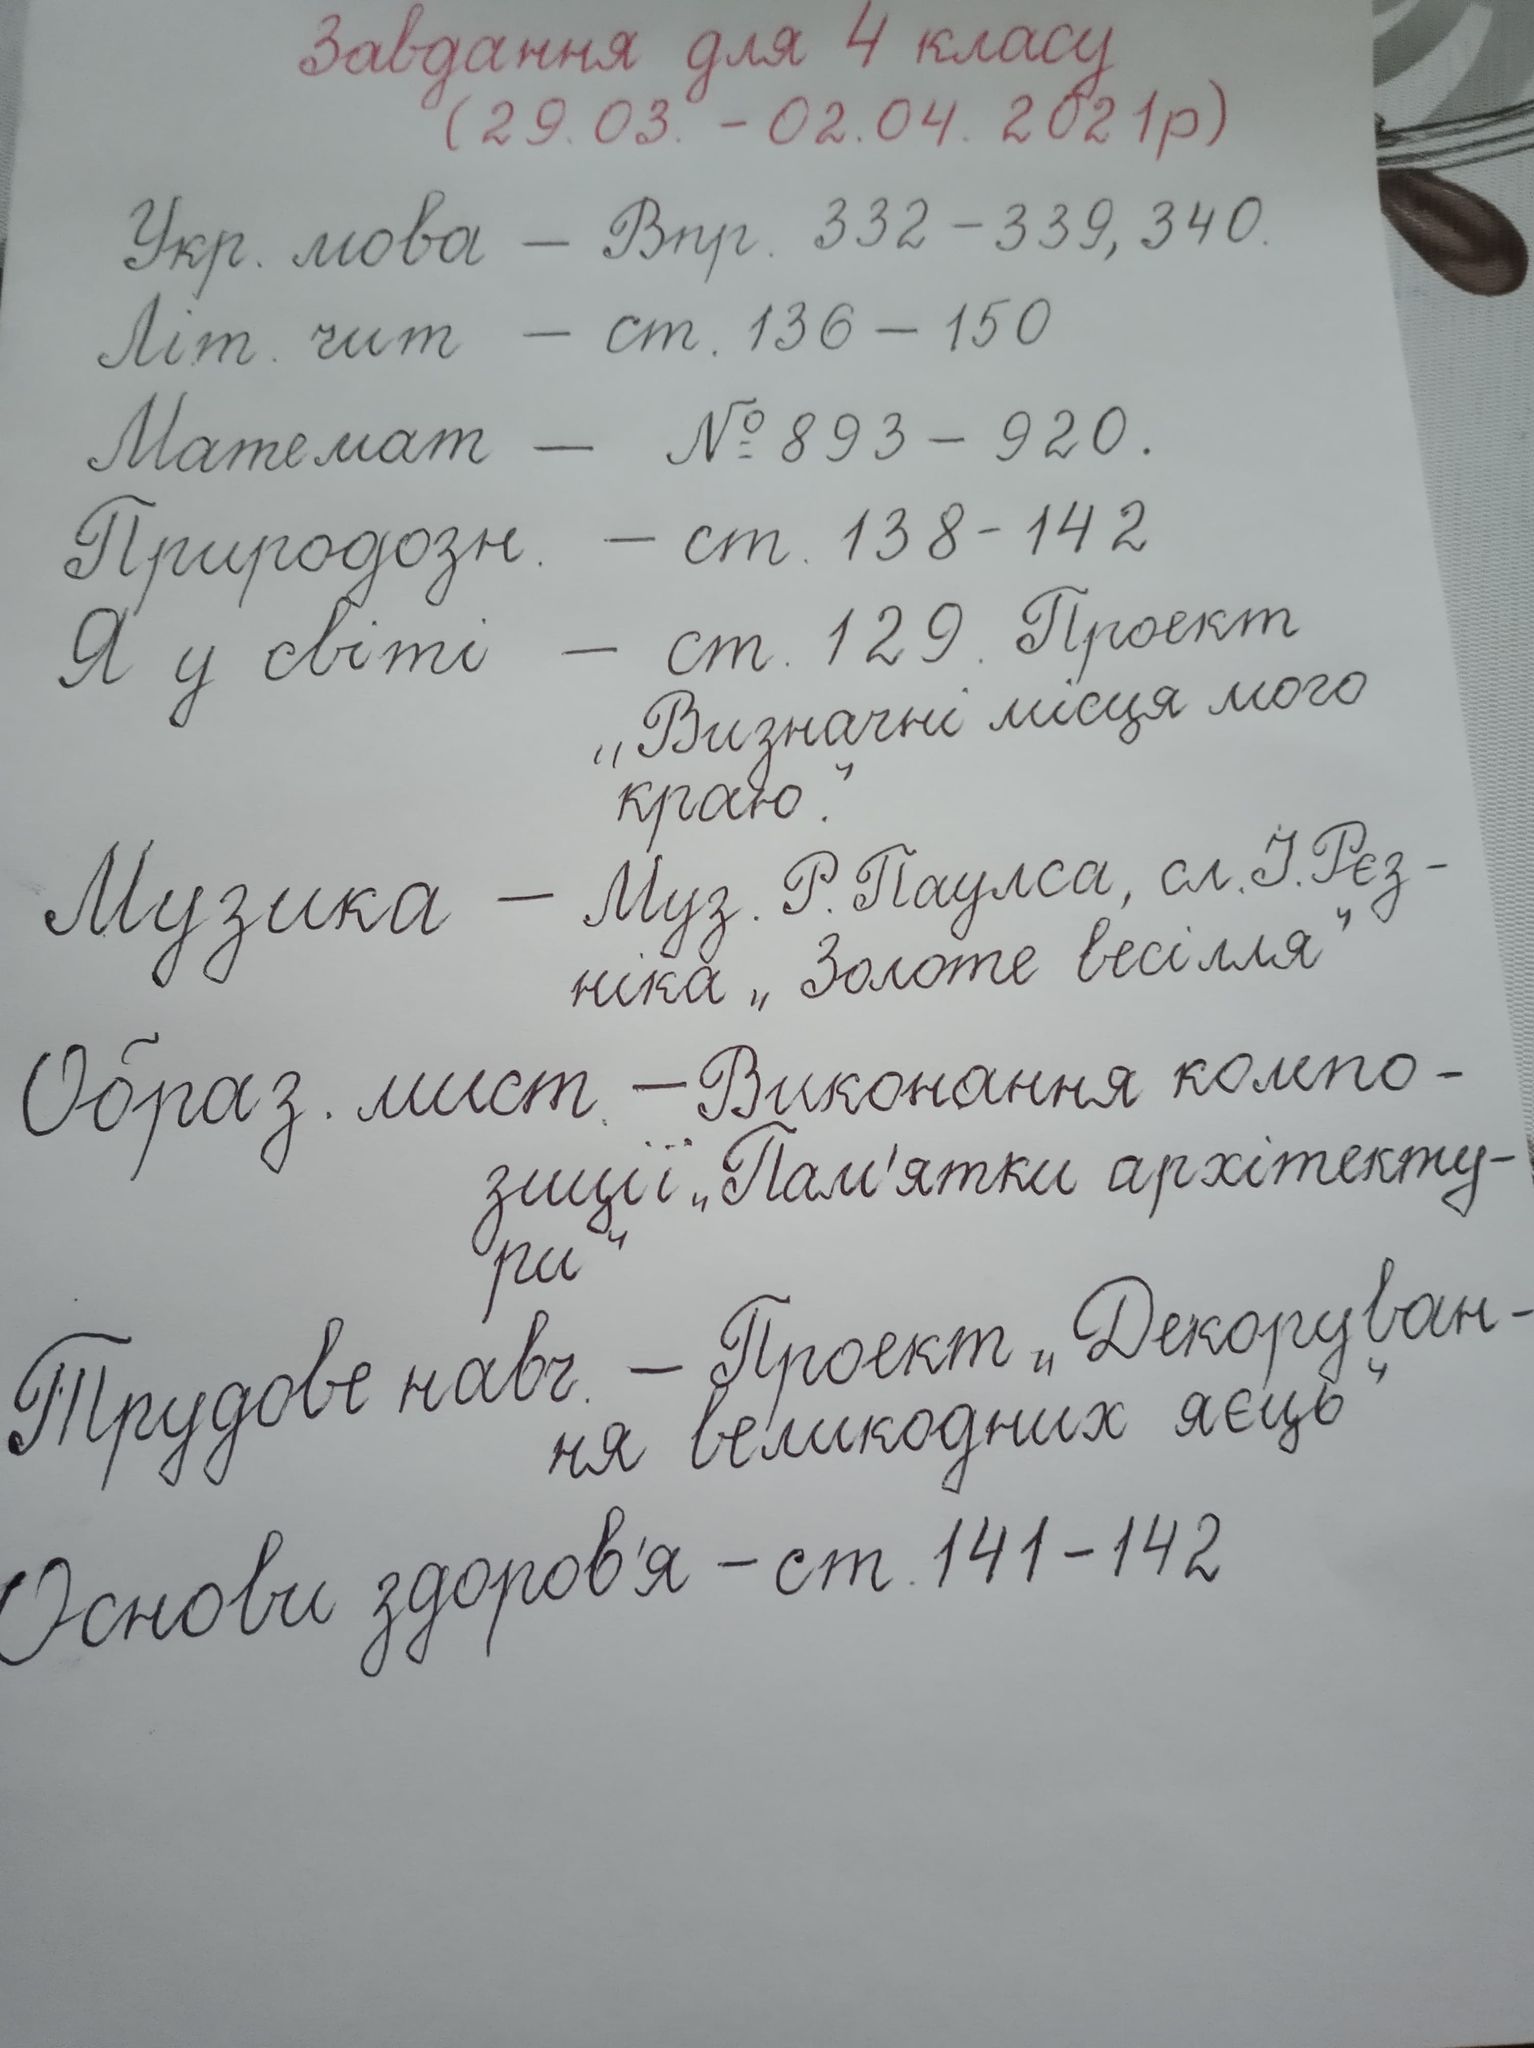 Завдання для 4 класу
(29.03. - 02.04. 2021р)
Укр. мова – Впр. 332 – 339, 340.
Літ. чит – ст. 136 – 150
Математ – № 893 – 920.
Природозн. – ст. 138 - 142
Я у світі – ст. 129. Проект
„Визначні місця мого
краю."
Музика – Муз. Р. Паулса, сл. І. Рєз-
ніка „Золоте весілля"
Образ. мист. – Виконання компо-
зиції „Пам'ятки архітекту-
ри"
Трудове навч. – Проект „Декоруван-
ня великодних яєць"
Основи здоров'я – ст. 141 - 142